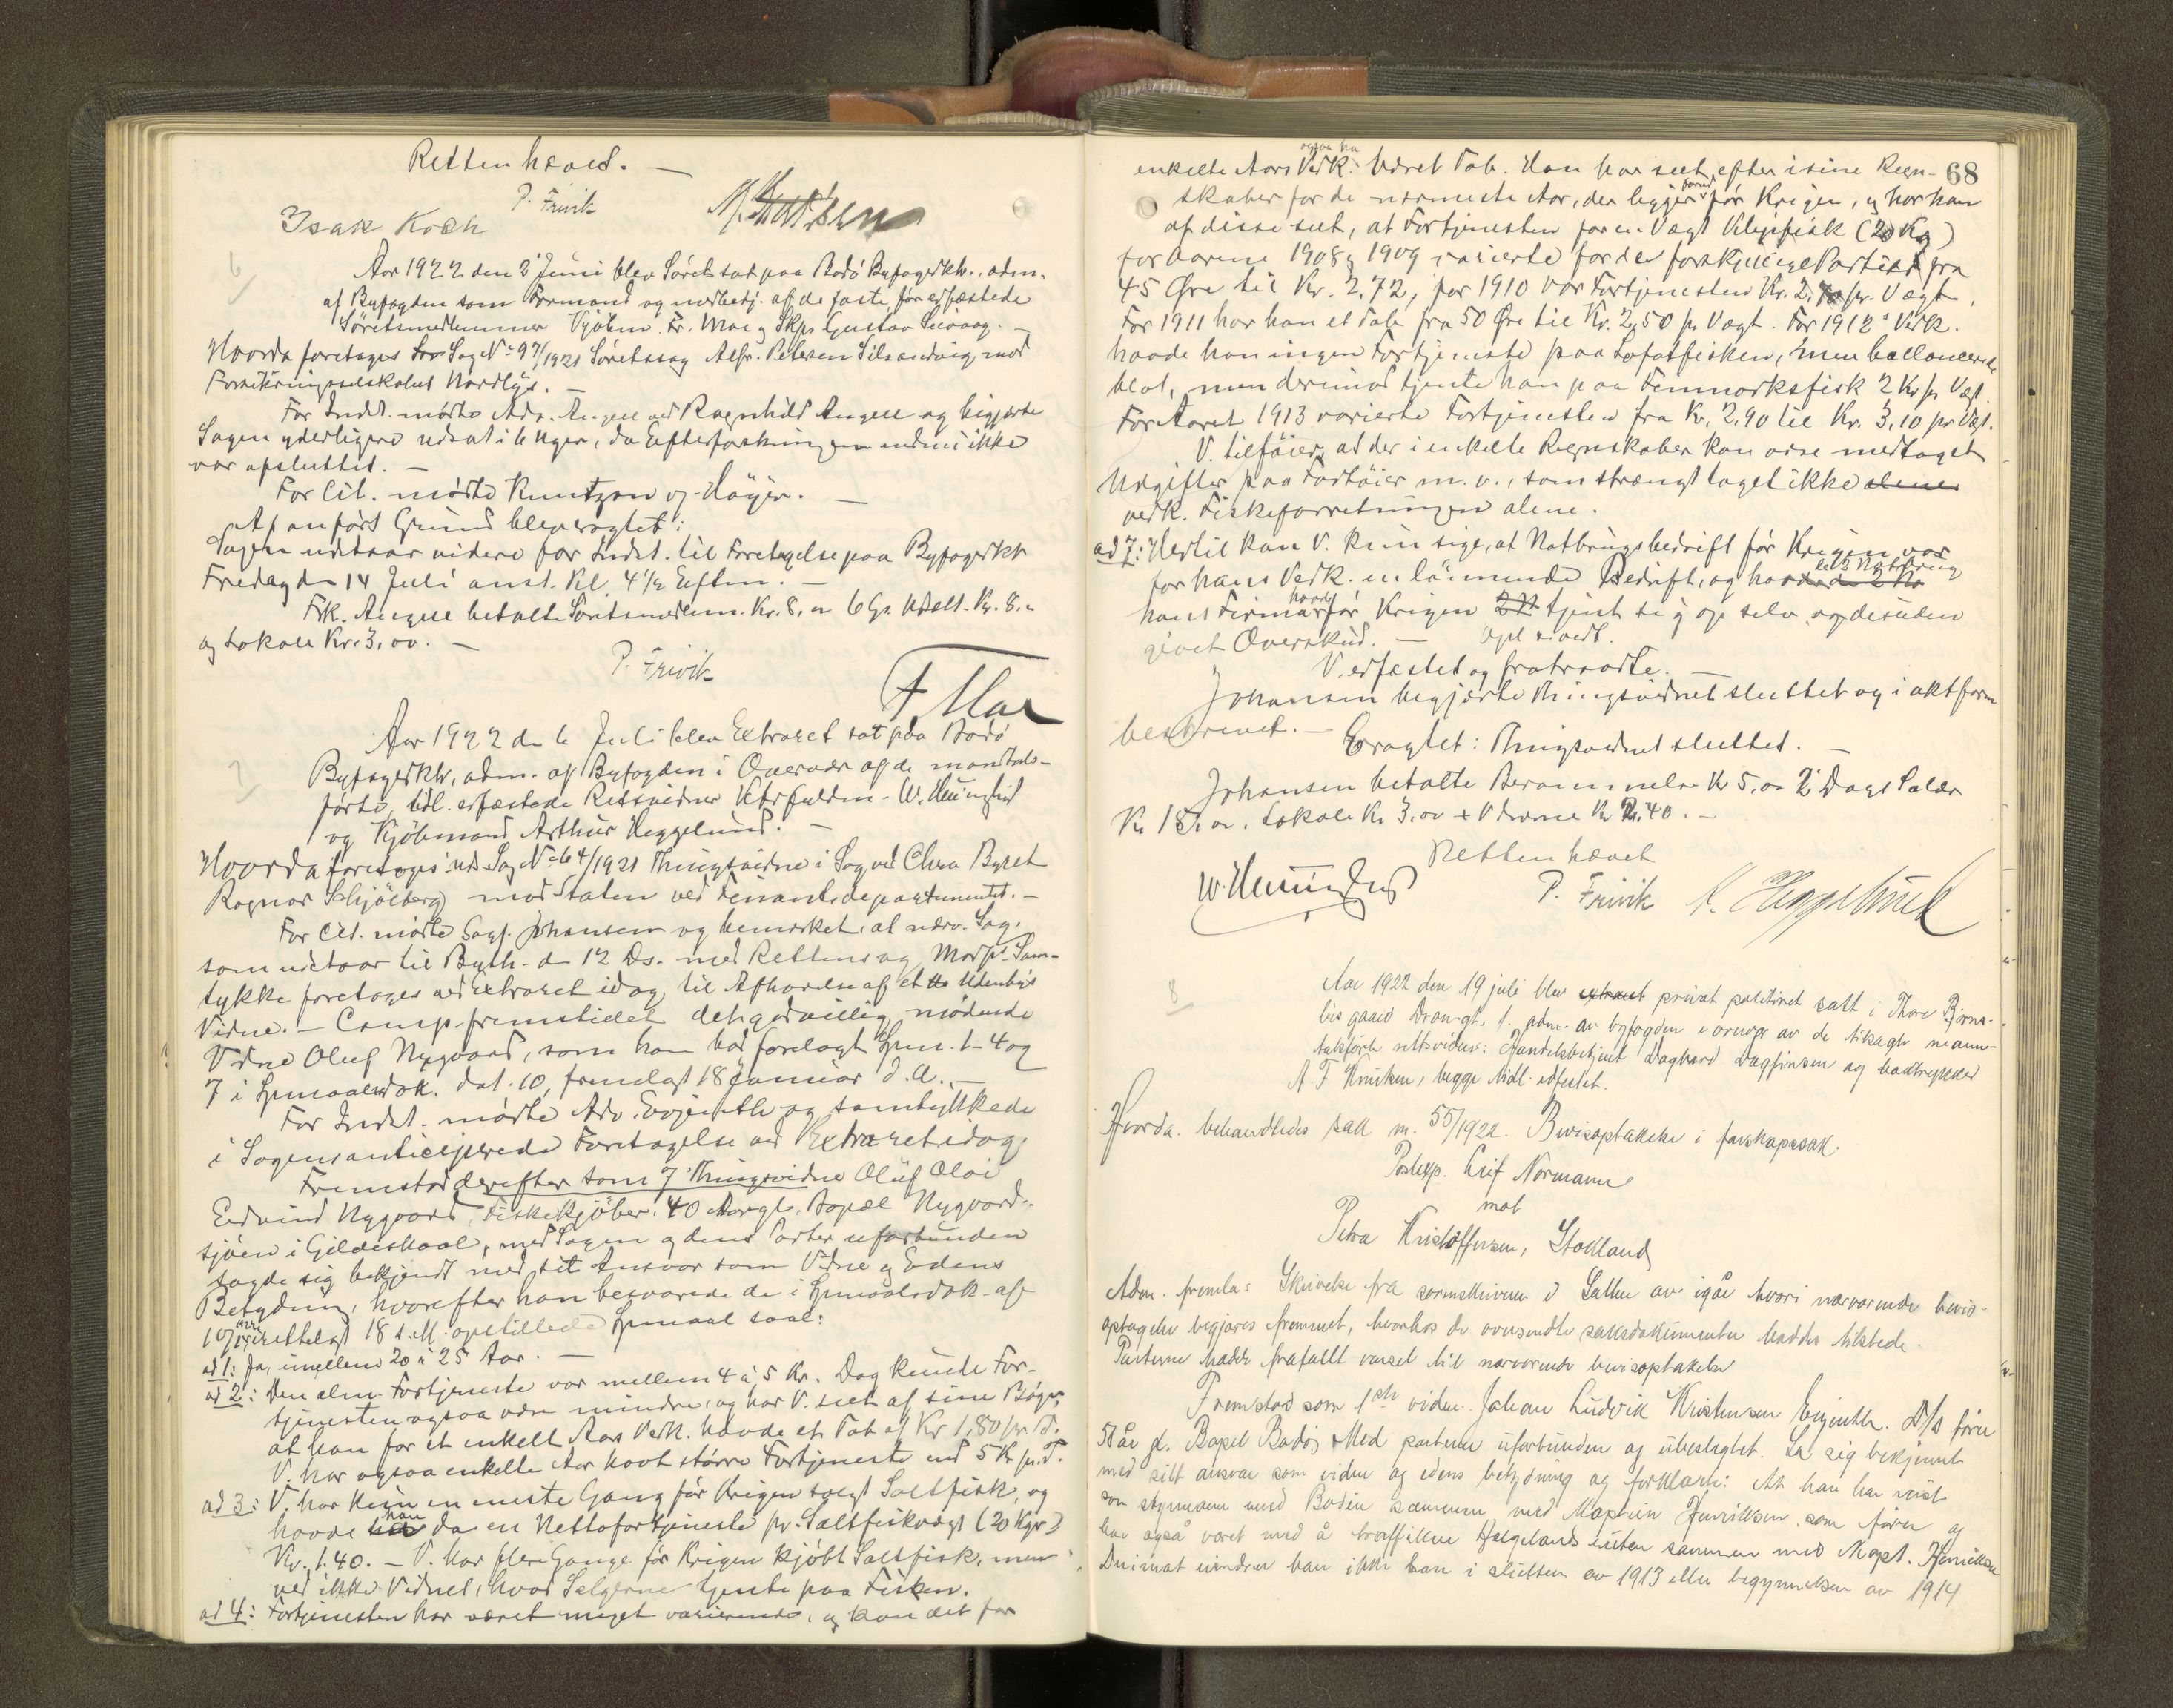 Retten hævet. —
P. Frivik
Isak Koch
6
Aar 1922 den 2' Juni blev Søret sat paa Bodø Byfogedktr., adm.
af Byfogden som Formand og medbetj. af de faste, før edfæstede
Søretsmedlemmer Kjøbm. Fr. Moe og Skpr Gustav . —
Hvorda foretoges Sag No 97/1921 Søretssag Alfr. Petersen Silsandvig mod
Forsikringsselskabet Nordlys. —
For Indst. mødte Adv. Angell ved Ragnhild Angell og begjærte
Sagen yderligere udsat i 6 Uger, da Efterforskningen endnu ikke
var afsluttet. —
For Cit. mødte Knutzon og Høyer. —
Af anført Grund blev eragtet:
Sagen udstaar videre for Indst. til Foretagelse paa Byfogedktr
Fredag den 14 Juli anst. Kl. 4½ Efterm. —
Frk. Angell betalte Søretsmedlem. Kr. 8, 6 Gr. Udsætt. Kr. 8.
og Lokale Kr. 3,00. —
P. Frivik
F Moe
7
Aar 1922 den 6 Juli blev Extraret sat paa Bodø
Byfogedktr, adm. af Byfogden i Overvær af de mandtals-
førte, tidl. edfæstede Retsvidner W. Heminghid
og Kjøbmand Arthur Heggelund. —
Hvorda foretoges Sag No 64/1921 Thingsvidne i Sag ved Chra Byret
Ragnar Schjølberg mod Staten ved Finantsdepartementet. —
For Cit. mødte Sagf. Johansen og bemærket, at nærv. Sag,
som udstaar til Byth. d 12 Ds. med Rettens og Modp's Sam-
tykke foretages ved Extraret idag til Afhørelse af et Udenbys
Vidne. — Comp. fremstillet det godvillig mødende
Vidne Oluf Nygaard, som han had forelagt Spm. 1-4 og
7 i Spmaalsdok. dat. 10, fremlagt 18 Januar d. A. —
For Indst. mødte Adv. Evjenth og samtykkede
i Sagens anticiperede Foretagelse ved Extraret idag.
Fremstod derefter som 7' Thingsvidne Oluf Olai
Edvind Nygaard, Fiskekjøber, 40 Aar gl. Bopæl Nygaard-
sjøen i Gildeskaal, med Sagen og dens Parter uforbunden
sagde sig bekjendt med sit Ansvar som Vidne og Edens
Betydning, hvorefter han besvarede de i Spmaalsdok. af
10/1 1922 rettelagt 18 s. M. opstillede Spmaal saal:
ad 1: Ja, imellem 20 à 25 Aar. —
ad 2: Den alm. Fortjeneste var mellem 4 à 5 Kr. Dog kunde For-
tjenesten ogsaa være mindre, og har V. seet af sine Bøger,
at han for et enkelt Aars Vedk. havde et Tab af Kr 1,80 pr. T.
V. har ogsaa enkelte Aar havt større Fortjeneste end 5 Kr pr. T.
ad 3: V. har kun en eneste Gang før Krigen solgt Saltfisk, og
havde han da en Nettofortjeneste pr. Saltfiskvægt (20 Kgr.)
Kr. 1.40. — V. har flere Gange før Krigen kjøbt Saltfisk, men
ved ikke Vidnet, hvad Selgerne tjente paa Fisken.
ad 4: Fortjenesten har været meget varierende, og kan det for
68
enkelte Aars Vedk. ogsaa ha været Tab. Han har seet efter i sine Regn-
skaber for de nærmeste Aar, der ligger forud før Krigen, og har han
af disse seet, at Fortjenesten for en Vægt Klipfisk (20 Kg)
for Aarene 1908 og 1909 varierte for de forskjellige Partier fra
45 Øre til Kr. 2,72, for 1910 var Fortjenesten Kr. 2, pr. Vægt,
For 1911 har han et Tab fra 50 Øre til Kr. 2,50 pr. Vægt. For 1912 s Vedk.
havde han ingen Fortjeneste paa Lofotfisken, men ballancerede
blot, men derimod tjente han paa Finmarksfisk 2 Kr pr Vægt.
For Aaret 1913 varierte Fortjenesten fra Kr. 2,90 til Kr. 3,10 pr. Vægt.
V. tilføier, at der i enkelte Regnskaber kan være medtaget
Udgifter paa Fartøier m. v., som strængt taget ikke alene
vedk. Fiskeforretningen alene.
ad 7: Hertil kan V. kun sige, at Notbrugsbedrift før Krigen var
for hans Vedk. en lønnende Bedrift, og havde de 2 No
hans Firma havde før Krigen tjent sig op selv og desuden
givet Overskud. — Opl. vedt.
V. edfæstet og fratraadte. —
Johansen begjærte Thingsvidnet sluttet og i aktform
beskrevet. — Eragtet: Thingsvidnet sluttet. —
Johansen betalte Berammelse Kr 5,00 2 Dags Salær
Kr 18,00. Lokale Kr 3,00 + Vidnerne Kr 2.40. —
Retten hævet
P. Frivik A. Heggelund
8
Aar 1922 den 19 juli blev extraret privat politiret satt i Thore Bjørns-
vis gaard Dron. gt. 1. adm. av byfogden i overvær av de tilkagte mann-
talsførte rettsvidner: Handelsbetjent Dagbard Dagfinsen og boktrykker
A. F Knutsen, begge tidl. edfestet.
Hvorda behandledes sak nr. 55/1922. Bevisoptakelse i farskapssak.
Postexp. Leif Normann
mot
Petra Kristoffersen, Stokland
Adm. fremla: Skrivelse fra sorenskriveren i Salten av igår hvori nærværende bevis-
optagelse begjæres fremmet, hvorhos de oversendte saksdokumenter haddes tilstede.
Parterne hadde frafallt varsel til nærværende bevisoptakelse
Fremstod som 1ste vidne Johan Ludvik Kristensen Evjenth. D/s fører
51 år gl. Bopel Bodø, Med parterne uforbunden og ubeslegtet. La sig bekjennt
med sitt ansvar som vidne og edens betydning og forklarte: At han har reist
som styrmann med Bodin sammen med Kaptein Henriksen som fører og
har også været med å trafikkere Helgelands ruten sammen med Kapt. Henriksen
Derimot erindrer han ikke han i slutten av 1913 eller begynnelsen av 1914